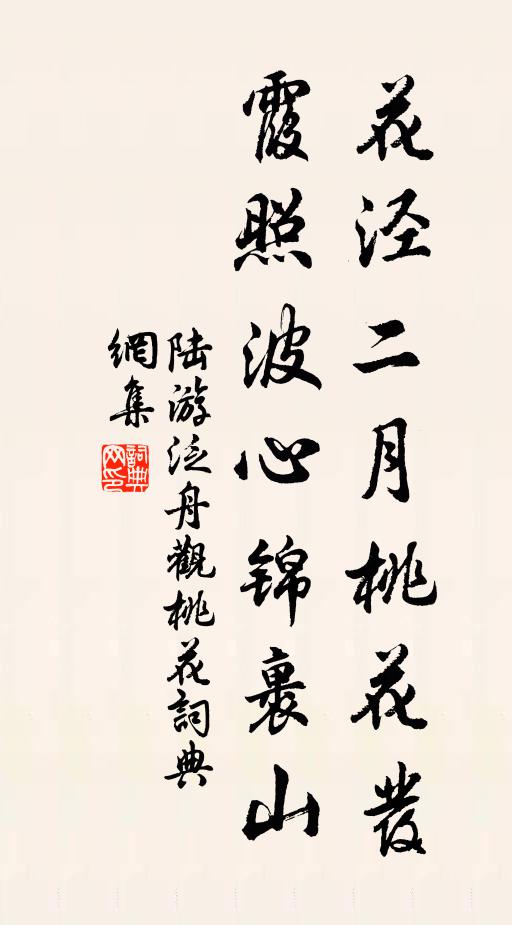 花泾二月桃花發
霞照波心锦裹山
陆游泛舟觀桃花詞典
網集
詞典网印